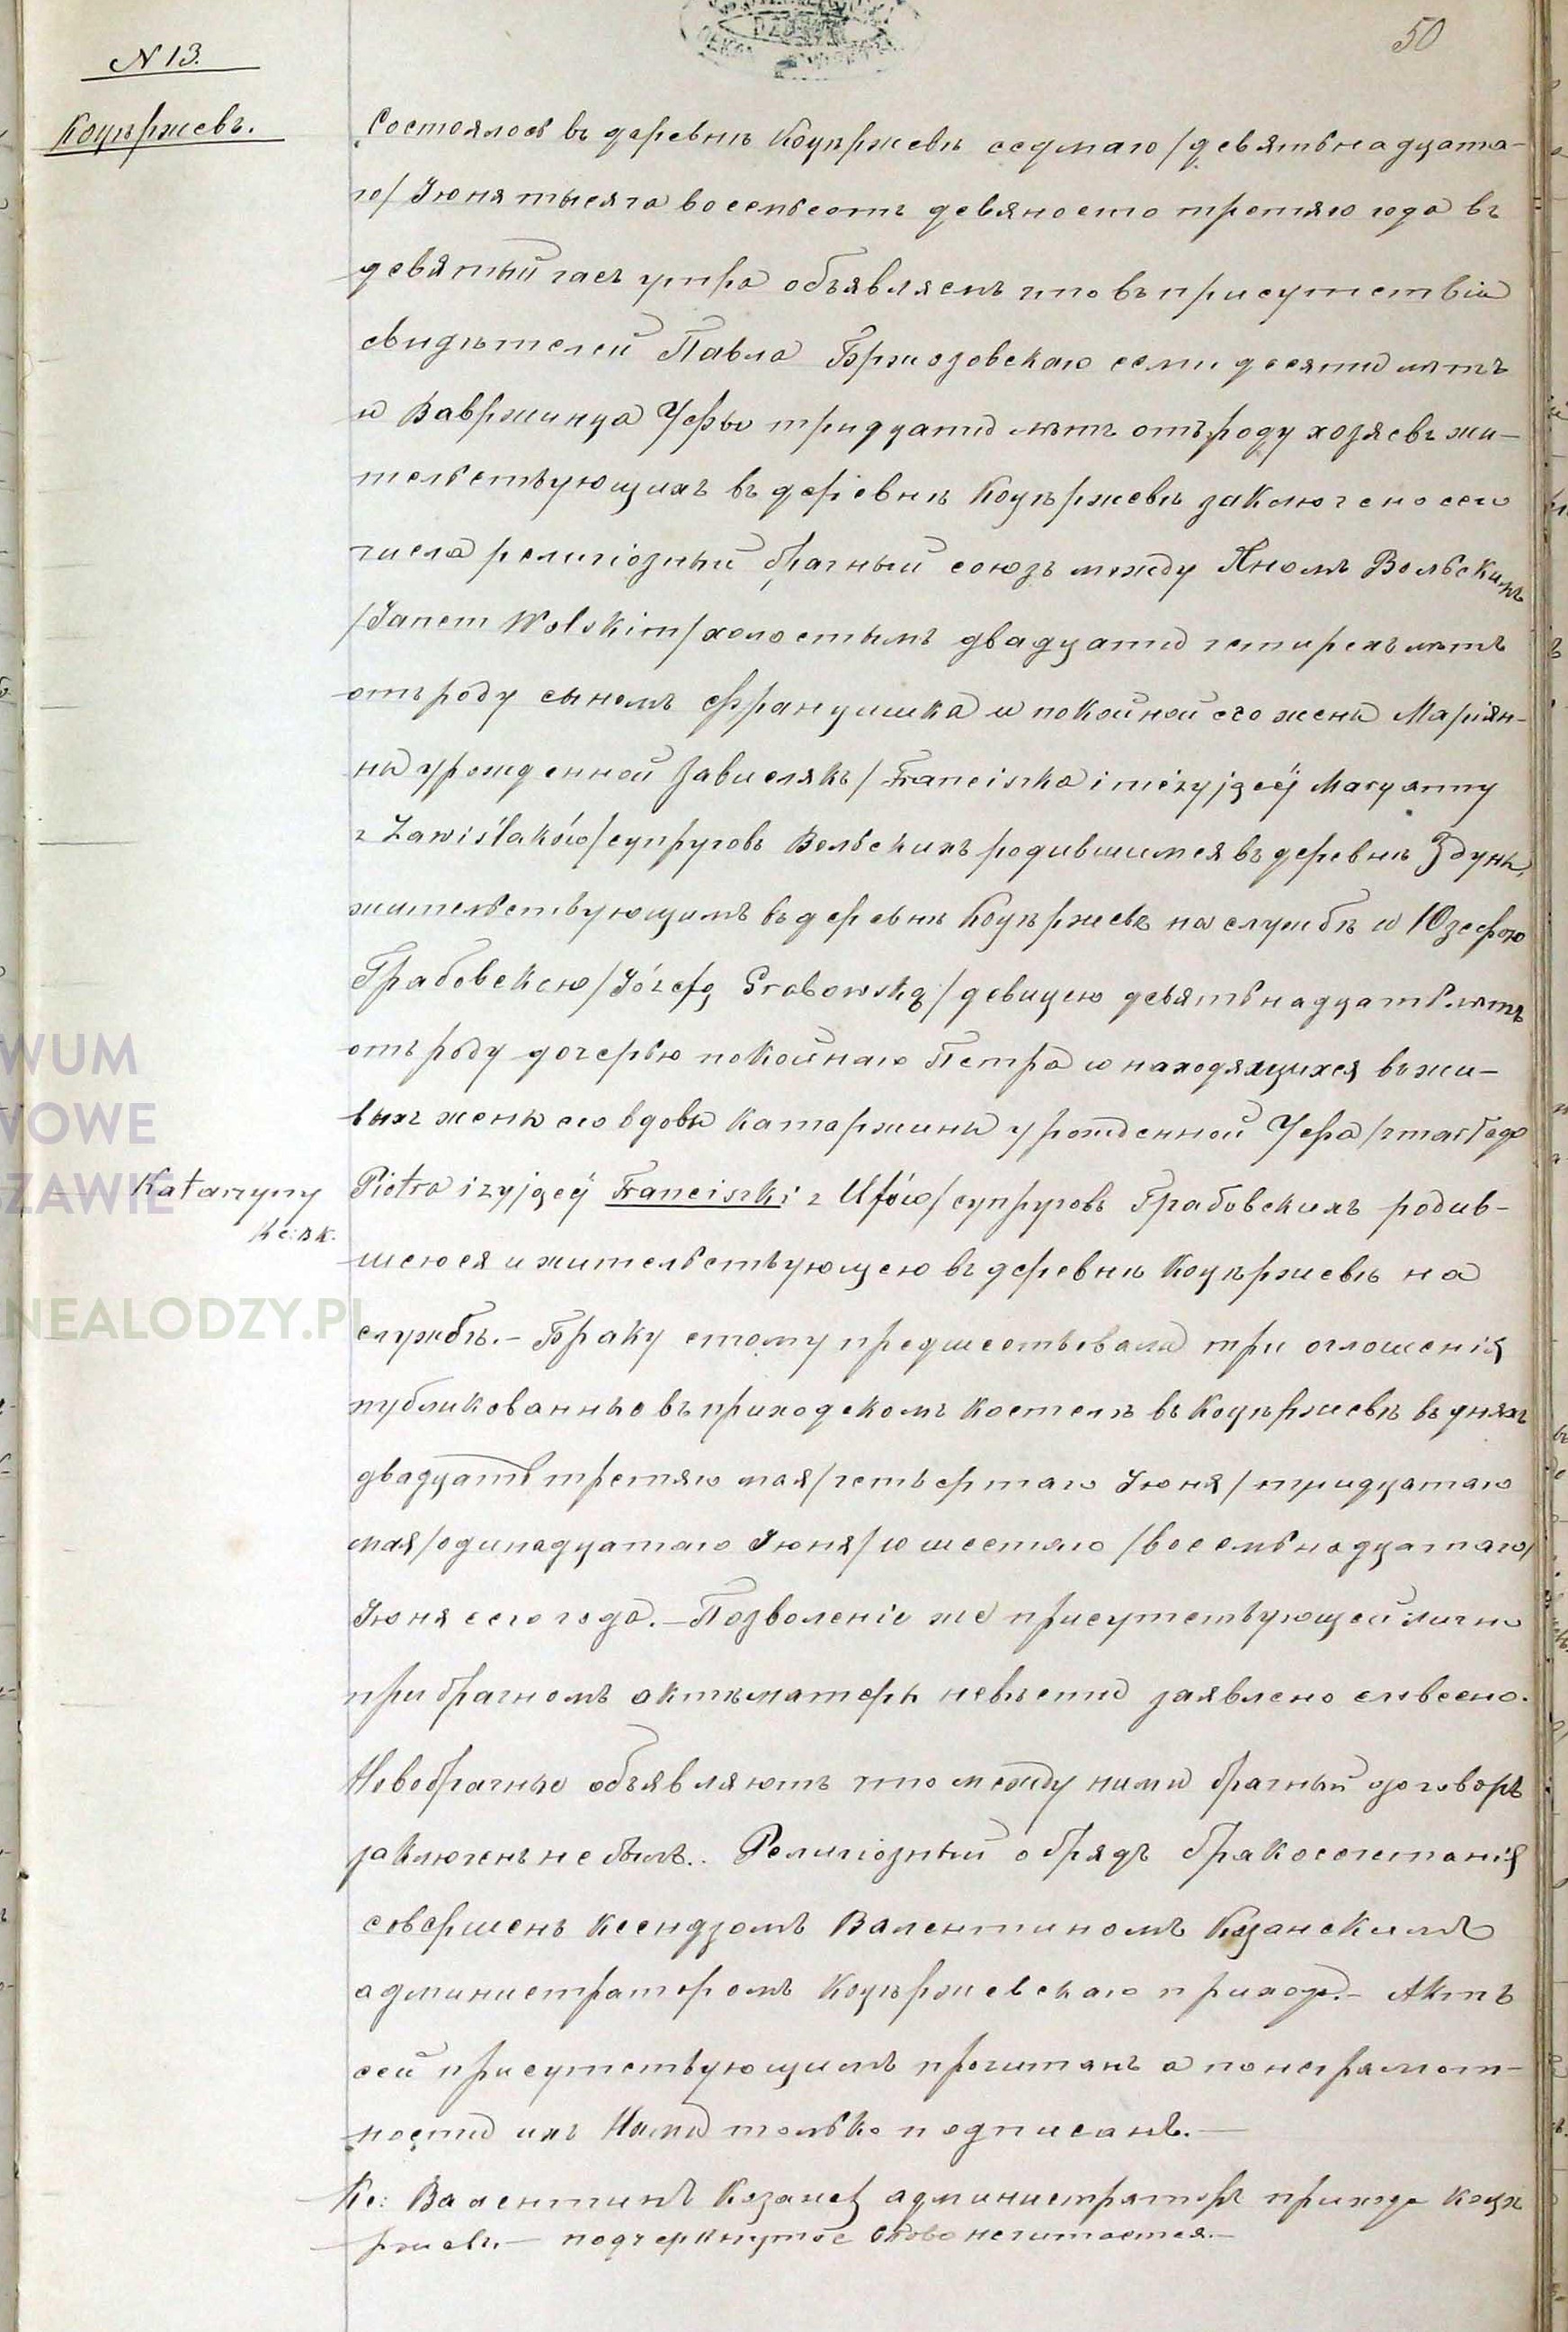 50
N 13.
Коцѣржевъ.
Состоялось въ деревнѣ Коцѣржевѣ седмаго /девятьнадцата-
го/ Іюня тысяча восемьсотъ девяносто третяго года въ
девятый часъ утра объявляемъ что въ присутствіи
свидѣтелей Павла Бржозовскаго семидесяти лѣтъ
и Вавржинца Уфы тридцати лѣтъ отъ роду хозяевъ жи-
тельствующихъ въ деревнѣ Коцѣржевѣ заключено сего
числа религіозный брачный союзъ между Яномъ Вольскимъ
/Janem Wolskim/ холостымъ двадцати четырехъ лѣтъ
отъ роду сыномъ Францишка и покойной его жены Маріян-
ны урожденной Зависляќъ /Franciszka i nieżyjącéj Maryanny
z Zawiślaków/ супруговъ Вольскихъ родившимся въ деревнѣ Здуны,
жительствующимъ въ деревнѣ Коцѣржевѣ на службѣ и Юзефою
Грабовскою /Józefą Grabowską/ девицею девятьнадцать лѣтъ
отъ роду дочерью покойнаго Петра и находящихся въ жи-
выхъ жены его вдовы Катаржины урожденной Уфа /zmarłego
Katarzyny
Piotra i żyjącéj Franciszki z Ufów/ супруговъ Грабовскихъ родив-
шеюся и жительствующею въ деревнѣ Коцѣржевѣ на
службѣ.- Браку этому предшествовали три оглошенія
публикованные въ приходскомъ костелѣ въ Коцѣржевѣ въ дняхъ
двадцать третяго мая /четвертаго Іюня/ тридцатаго
мая /одинадцатаго Іюня/ и шестаго /восемьнадцатаго/
Іюня сего года.- Позволеніе же присутствующей лично
при брачномъ актѣ матери невѣсты заявлено словесно.
Новобрачные объявляютъ что между ними брачный договоръ
заключенъ не былъ.. Религіозный обрядъ бракосочетанія
совершенъ ксендзомъ Валентиномъ Казанскимъ
администраторомъ Коцѣржевскаго прихода.- Актъ
сей присутствующимъ прочитанъ а по неграмот-
ности ихъ Нами только подписанъ.-
Кс: Валентинъ администраторъ прихода Коцѣ
ржевъ.- подчеркнутое слово нечитается.-
WUM
WOWE
SZAWIE
NEALODZY.PL